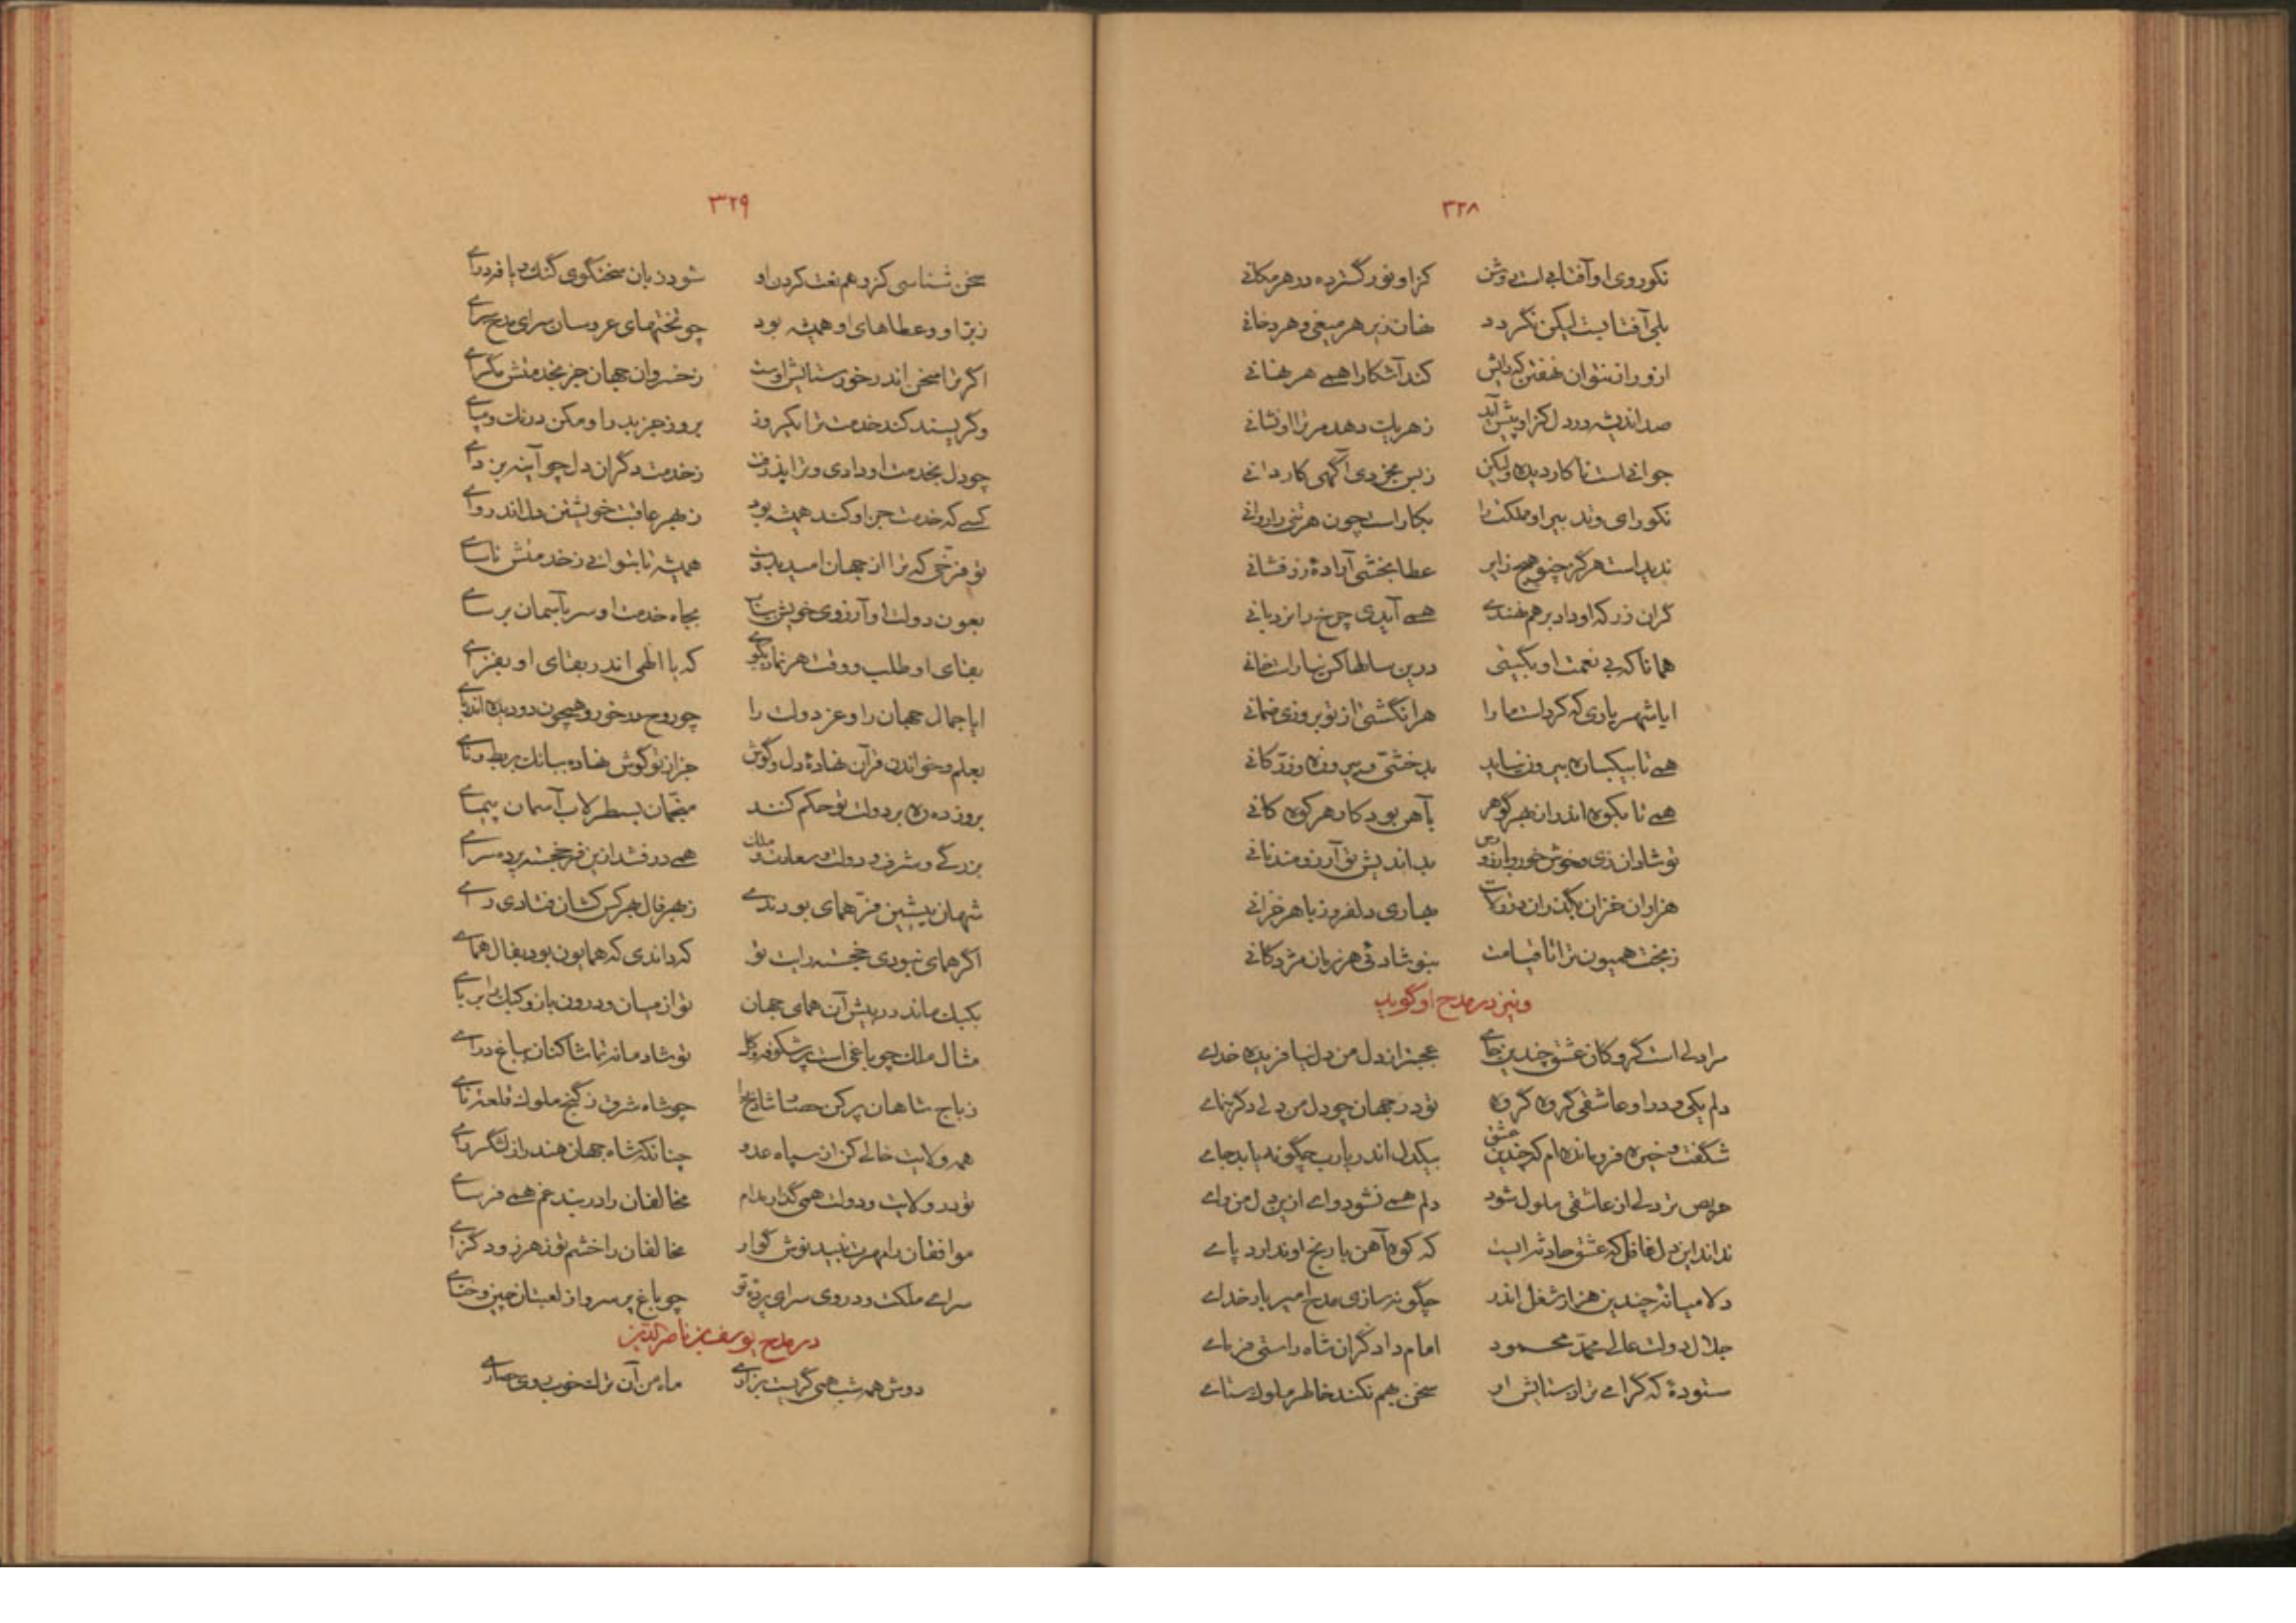 ۳۲۸
نکوروی او آفتابی است روشن کز او نور گسترده در هر مکانی
بلی آفتابست لیکن نگردد نهان زیر هر میغی و هر دخانی
ازو راز نتوان نهفتن که رایش کند آشکارا همی هر نهانی
صد اندیشه در دل کز او پیش آید ز هریک دهد مر ترا او نشانی
جوانی است ناکاردیده ولیکن ز بس بخردی آگهی کاردانی
نکو رای و تدبیر او مملکت را بکار است چون هر تنی را روانی
ندید است هرگز چنو هیچ زایر عطا بخشی آزادهٔ زرفشانی
گران زر که او داد بر هم نهندی همی آیدی چرخ را نردبانی
همانا که بی نعمت او بگیتی درین سالها کس نیاراست خانی
ایا شهریاری که کردست ما را هر انگشتی از تو بروزی ضمانی
همی تا بیکسان بیرون نیاید بدخشی و پیروزه و زرّ کانی
همی تا بکوه اندر از بهر گوهر بآهن بود کار هر کوه کانی
تو شادان زی و خوش خور و بارزو رس بداندیش تو آرزومند نانی
هزاران خزان بگذران در ولایت بهاری دلفروز با هر خزانی
ز بخت همیون ترا تا قیامت بنو شادئی هر زمان مژدگانی
و نیز در مدح او گوید
مرا دلی است گروگان عشق چندین جای عجبتر از دل من دل نیافریده خدای
دلم یکی و در او عاشقی گروه گروه تو در جهان چو دل من دلی دگر بنمای
شگفت و خیره فرومانده‌ام که چندین عشق بیکدل اندر یارب چگونه یابد جای
حریص تر دلی از عاشقی ملول شود دلم همی نشود وای ازین دل من وای
نداند این دل غافل که عشق حادثه ایست که کوه آهن با رنج او ندارد پای
دلا میانهٔ چندین هزار شغل اندر چگونه سازی مدح امیر بارخدای
جلال دولت عالی محمّد محمود امام دادگران شاه راستی فرمای
ستودهٔ که گرامی تر از ستایش او سخن بهم نکند خاطر ملوک ستای
۳۲۹
سخن شناسی کز وهم نعت کردن او شود زبان سخنگوی گنگ و یافه درای
زبرّ او و عطاهای او همیشه بود چو تختهای عروسان سرای مدح سرای
اگر ترا سخن اندر خور ستایش اوست ز خسروان جهان جز بخدمتش مگرای
وگر پسند کند خدمت ترا یکروز بروز جز بدر او مکن درنگ و مپای
چو دل بخدمت او دادی و ترا پذرفت ز خدمت دگران دل چو آینه بزدای
کسی که خدمت جز او کند همیشه بود ز بهر عاقبت خویشتن دل اندروای
تو فرّخی که ترا از جهان امید بدوست همیشه تا بتوانی ز خدمتش ناسای
بعون دولت او آرزوی خویش بیاب بجاه خدمت او سر بآسمان برسای
بقای او طلب و وقت هر نماز بگوی که یا الهی اندر بقای او بفزای
ایا جمال جهان را و عز دولت را چو روح در خور و همچون دو دیده اندر بای
بعلم و خواندن قرآن نهادهٔ دل و گوش جز از تو گوش نهاده ببانگ بربط و نای
بروز ده ره بر دولت تو حکم کنند منجّمان بسطرلاب آسمان پیمای
بزرگی و شرف و دولت و سعادت و ملک همی درفشد ازین فرّ خجسته پرده سرای
شهان پیشین فرّ همای بودندی ز بهر فال بهر کس کشان فتادی رای
اگر همای نبودی خجسته رایت تو که داندی که همایون بود بفال همای
بکبک ماند در پیش آن همای جهان تو از میان و درون باز و کبک را بربای
مثال ملک چو باغی است پر شکوفه و گل تو شادمانه تماشا کنان بباغ درای
ز باج شاهان پر کن حصنها شارنج چو شاه شرق ز گنج ملوک قلعهٔ نای
همه ولایت خالی کن از سپاه عدو چنانکه شاه جهان هند را ز لشگر رای
تو در ولایت و دولت همی گذار مدام مخالفان را در بند غم همی فرسای
موافقان را مهرت نبید نوش گوار مخالفان را خشم تو زهر زود گزای
سرای ملکت و در وی سرای پردهٔ تو چو باغ پر سرو از لعبتان چین و ختای
در مدح یوسف بن ناصرالدین
دوش همه شب همی گریست بزاری ماه من آن ترک خوب روی حصاری